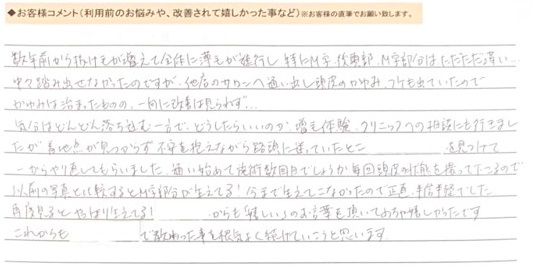 ◆お客様コメント(利用前のお悩みや、改善されて嬉しかった事など)※お客様の直筆でお願い致します。
数年前から抜けもが増えて全体に薄毛が進行し 特にM字、後頭部、M字部分はただただ薄い…
踏み出せなかったのですが、他店のサロンへ通い出し頭皮のかゆみ、フケも出ていたので
かゆみは治まったものの、一向に改善は見られず…
気分はどんどん落ち込む一方で、どうしたらいいのか、増毛体験、クリニックへの相談にも行きまし
たが着地点が見つからず 不安を抱えながら路頭に迷っていたとこ を見つけて
一からやり直してもらいました。通い始めて施術数回目でしょうか毎回頭皮の状態を撮って下さるので
以前の写真と比較するとM字部分が生えてる! 今まで生えてこなかったので正直、半信半疑でした
再度見るとやっぱり生えてる! からも「嬉しい」のお言葉を頂いてめちゃ嬉しかったです
これからも で教わった事を根気よく続けていこうと思います